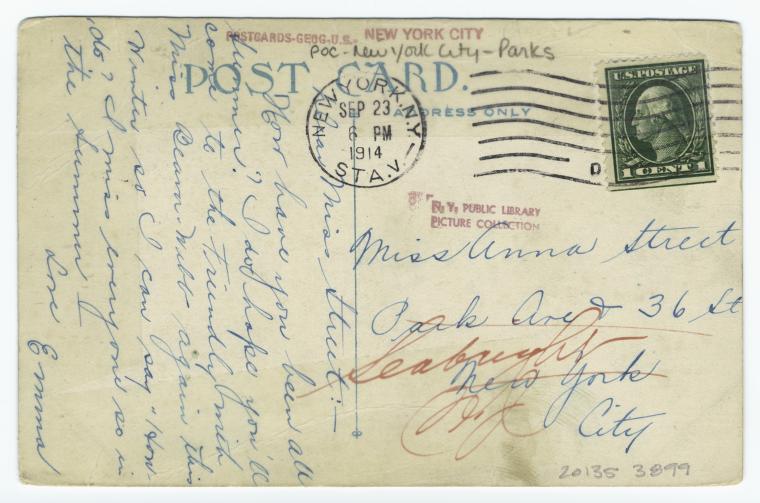 POSTCARDS-GEOG-U.S. NEW YORK CITY
POC-New York City-Parks
POST CARD.
ADDRESS ONLY
NEW YORK, N.Y.
SEP 23
6 PM
1914
STA. V.
D
U.S. POSTAGE
1 CENT 1
N.Y. PUBLIC LIBRARY
PICTURE COLLECTION
Miss Anna Street
Park Ave & 36 St
New York
City
Seabright
N.J.
20135 3899
Miss Street:—
How have you been all
summer? I do hope you'll
come to the Friendly with
Miss Beam Webb again this
Winter so I can say "How-
do? I miss everyone so in
the Summer —
Love
Emma